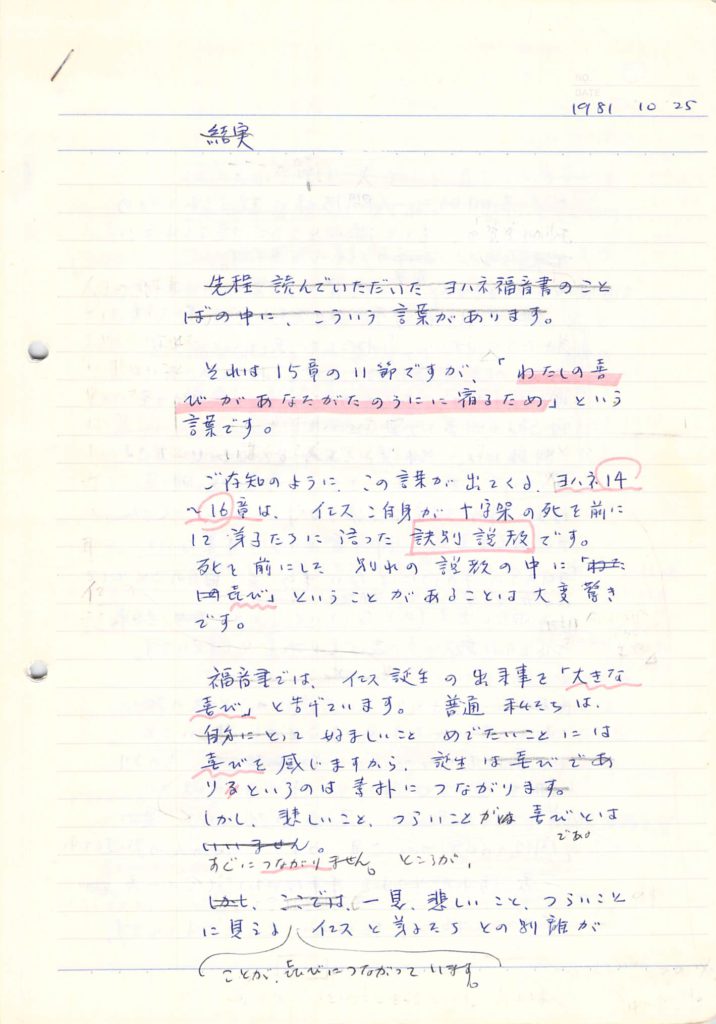 1981 10 25
結実
先程 読んでいただいた ヨハネ福音書のこと
ばの中に、こういう 言葉があります。
それは15章の11節ですが、「わたしの喜
びがあなたがたのうちに宿るため」という
言葉です。
ご存知のように、この言葉が出てくる、ヨハネ14
~16章は、イエスご自身が十字架の死を前に
に弟子たちに語った 訣別説教です。
死を前にした 別れの説教の中に「わた
喜び」ということがあることは大変驚き
です。
福音書では、イエス誕生の出来事を「大きな
喜び」と告げています。普通 私たちは、
自分にとって好ましいこと めでたいことには
喜びを感じますから、誕生は喜びであ
りるというのは素朴につながります。
しかし、悲しいこと、つらいことが 喜びとは
いいません。
であ
すぐにつながりません。ところが、
しかし、ここでは、一見、悲しいこと、つらいこと
に見える イエスと弟子たちとの別離が
ことが、喜びにつながっています。